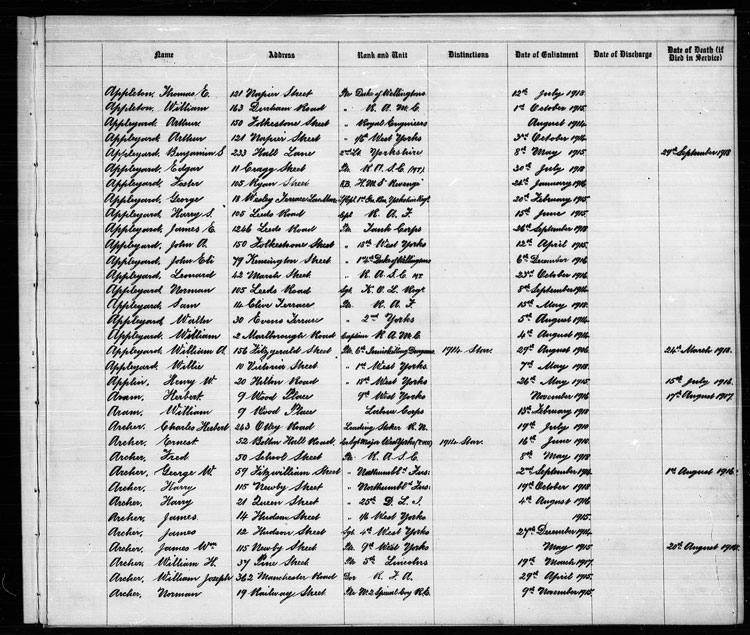 Name Address Rank and Unit Distinctions Date of Enlistment Date of Discharge Date of Death (if Died in Service)
Appleton, Thomas E. 121 Napier Street Pte Duke of Wellingtons 12th July 1918
Appleton, William 163 Durham Road " R.A.M.C. 1st October 1915
Appleyard, Arthur 150 Folkestone Street " Royal Engineers August 1914
Appleyard, Arthur 121 Napier Street " West Yorks 3rd October 1914
Appleyard, Benjamin S 233 Hall Lane 2nd Lt Yorkshire 8th May 1915 29th September 1918
Appleyard, Edgar 11 Cragg Street Pte R.A.S.C. (M.T.) 30th July 1918
Appleyard, Foster 105 Ryan Street H.M.S Revenge January 1916
Appleyard, George 18 Wesley Terrace 20th February 1915
Appleyard, Harry S. 105 Leeds Road R.A.F. 15th June 1915
Appleyard, James E. 1246 Leeds Road Pte Tank Corps 26th September 1918
Appleyard, John A. 150 Folkestone Street " 18th West Yorks 12th April 1915
Appleyard, John Eli 79 Kensington Street " Duke of Wellingtons 6th December 1916
Appleyard, Leonard 42 March Street " R.A.S.C. MT 23rd October 1916
Appleyard, Norman 105 Leeds Road Sgt K.O.L. Regt 8th September 1914
Appleyard, Sam 14 Clive Terrace Pte R.A.F. 15th May 1918
Appleyard, Walter 30 Evens Terrace " 2nd Yorks 5th August 1914
Appleyard, William 2 Marlborough Road Captain R.A.M.C. 4th August 1914
Appleyard, William A. 156 Fitzgerald Street Pte 6th Inniskilling Dragoons 1914 Star. 29th August 24th March 1918
Appleyard, Willie 10 Victoria Street " 1st West Yorks 7th May 1918
Applin, Henry W. 20 Hilton Road " 18th West Yorks 26th May 1915 15th July 1916
Aram, Herbert 9 Wood Place " 9th West Yorks November 1916 17th August 1917
Aram, William 9 Wood Place " Labour Corps 13th February 1918
Archer, Charles Herbert 243 Otley Road Leading Stoker R.N. 19th July 1910
Archer, Ernest 52 Bolton Hall Road Major West Yorks 1914 Star 16th June 1910
Archer, Fred 50 School Street Pte R.A.S.C. 8th May 1918
Archer, George W. 57 Fitzwilliam Street " Northumbld Fus. 2nd September 1914 1st August 1916
Archer, Harry 115 Newby Street " Northumbld Fus. 19th October 1918
Archer, Harry 21 Queen Street " 25th D.L.I. 4th August 1916
Archer, James 14 Hudson Street " West Yorks 1915
Archer, James 12 Hudson Street Sgt 4th West Yorks 27th December 1914
Archer, James Wm 115 Newby Street Pte 9th West Yorks May 1915 20th August
Archer, William H. 37 Pine Street Pte 5th Lincolns 19th March 1917
Archer, William Joseph 362 Manchester Road Dvr R.F.A. 29th April 1915
Archer, Norman 19 Railway Street Pte 9th November 1915